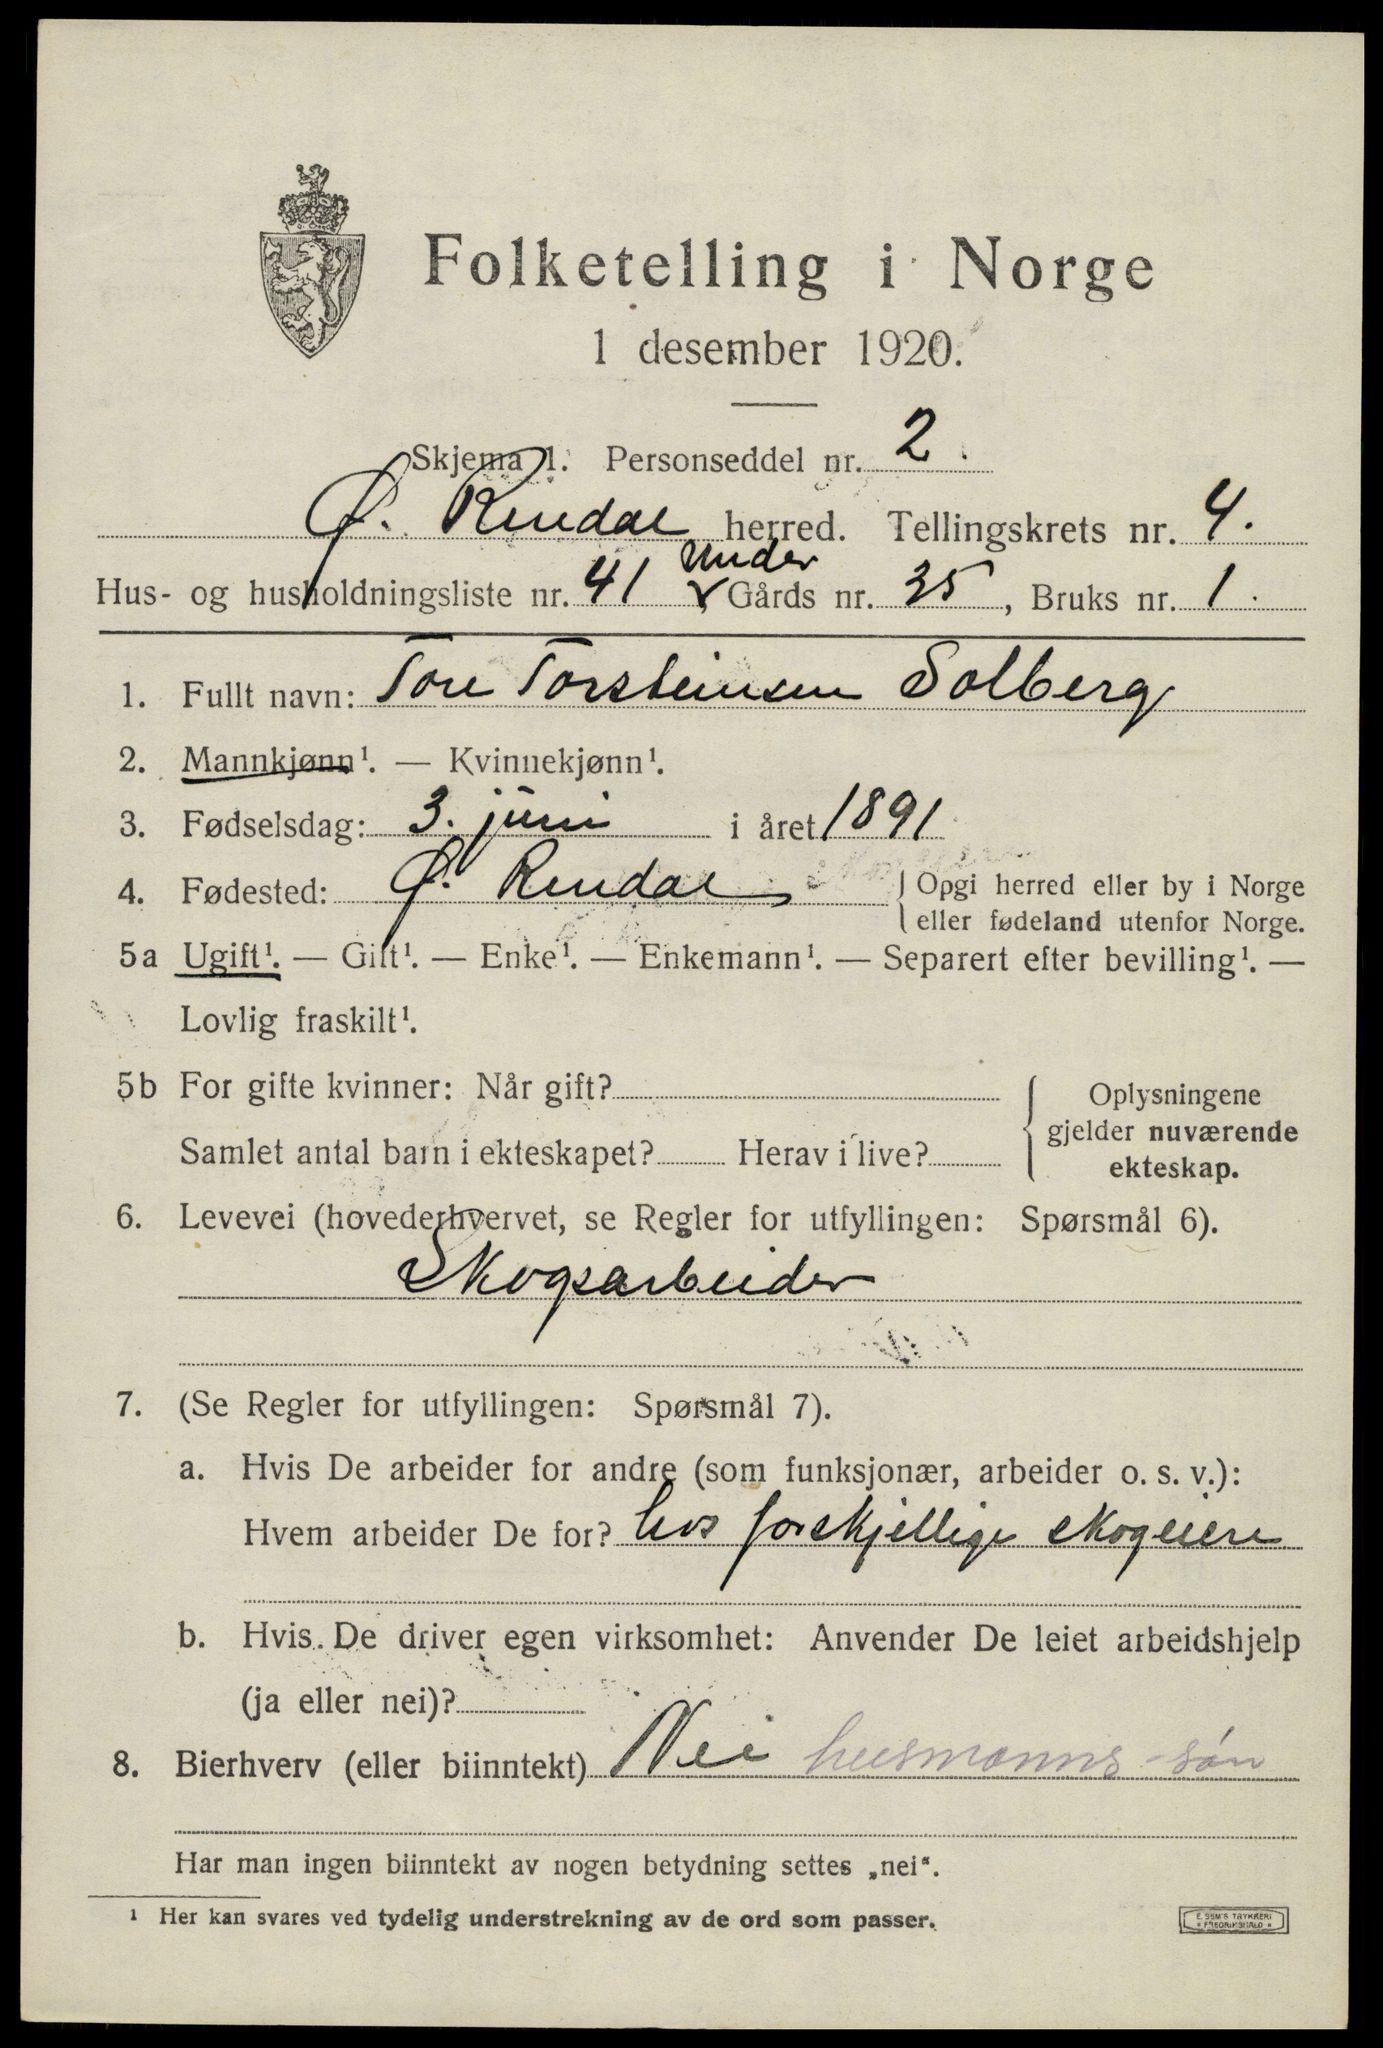 Folketelling i Norge
1 desember 1920.
Skjema 1. Personseddel nr. 2.
Ø. Rendal herred. Tellingskrets nr. 4.
Hus- og husholdningsliste nr. 41 under Gårds nr. 35, Bruks nr. 1.
1. Fullt navn: Tore Torsteinsen Solberg
2. Mannkjønn¹. — Kvinnekjønn¹.
3. Fødselsdag: 3. juni i året 1891
4. Fødested: Ø. Rendal { Opgi herred eller by i Norge
eller fødeland utenfor Norge.
5a Ugift¹. — Gift¹. — Enke¹. — Enkemann¹. — Separert efter bevilling¹. —
Lovlig fraskilt¹.
5b For gifte kvinner: Når gift? { Oplysningene
gjelder nuværende
Samlet antal barn i ekteskapet? Herav i live? ekteskap.
6. Levevei (hovederhvervet, se Regler for utfyllingen: Spørsmål 6).
Skogsarbeider
7. (Se Regler for utfyllingen: Spørsmål 7).
a. Hvis De arbeider for andre (som funksjonær, arbeider o. s. v.):
Hvem arbeider De for? hos forskjellige skogeiere
b. Hvis De driver egen virksomhet: Anvender De leiet arbeidshjelp
(ja eller nei)?
8. Bierhverv (eller biinntekt) Nei husmanns-søn
Har man ingen biinntekt av nogen betydning settes „nei“.
¹ Her kan svares ved tydelig understrekning av de ord som passer.
E. SEM'S TRYKKERI
FREDRIKSHALD